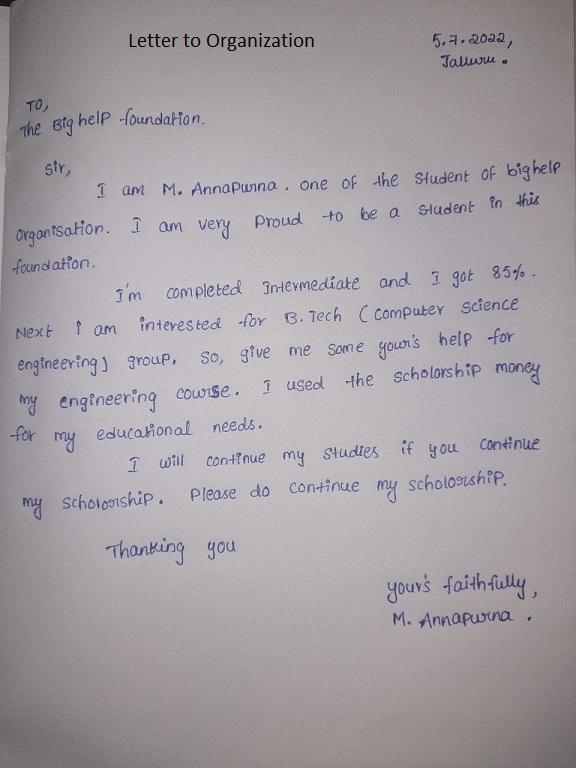 Letter to Organization
5.7.2022,
Talluru.
To,
The Big help foundation.
Sir,
I am M. Annapurna. one of the student of bighelp
organisation. I am very proud to be a student in this
foundation.
I'm completed Intermediate and I got 85%.
Next I am interested for B.Tech (computer science
engineering) group. so, give me some your's help for
my engineering course. I used the scholorship money
for my educational needs.
I will continue my studies if you continue
my scholoorship. Please do continue my scholoorship.
Thanking you
your's faithfully,
M. Annapurna.